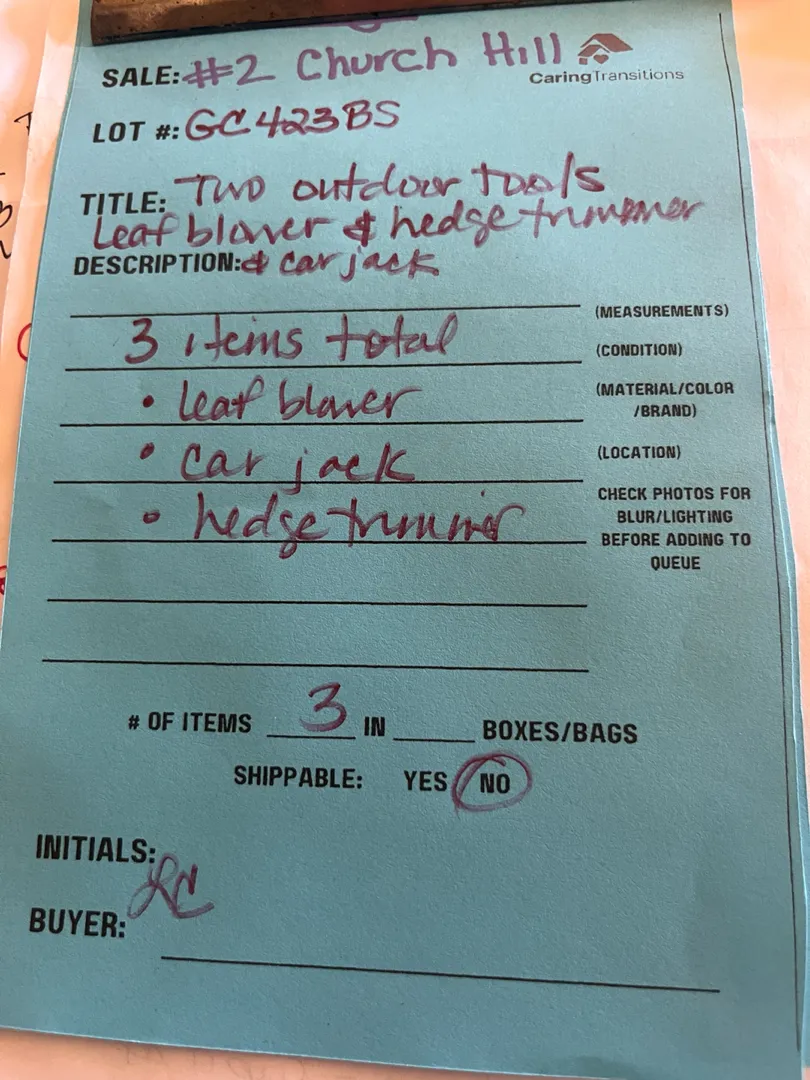 SALE: #2 Church Hill
CaringTransitions
LOT #: GC423BS
TITLE: Two outdoor tools
leaf blower & hedge trimmer
DESCRIPTION: & car jack
(MEASUREMENTS)
3 items total
(CONDITION)
• leaf blower
(MATERIAL/COLOR
/BRAND)
• car jack
(LOCATION)
• hedge trimmer
CHECK PHOTOS FOR
BLUR/LIGHTING
BEFORE ADDING TO
QUEUE
# OF ITEMS 3 IN BOXES/BAGS
SHIPPABLE: YES NO
INITIALS: LC
BUYER: